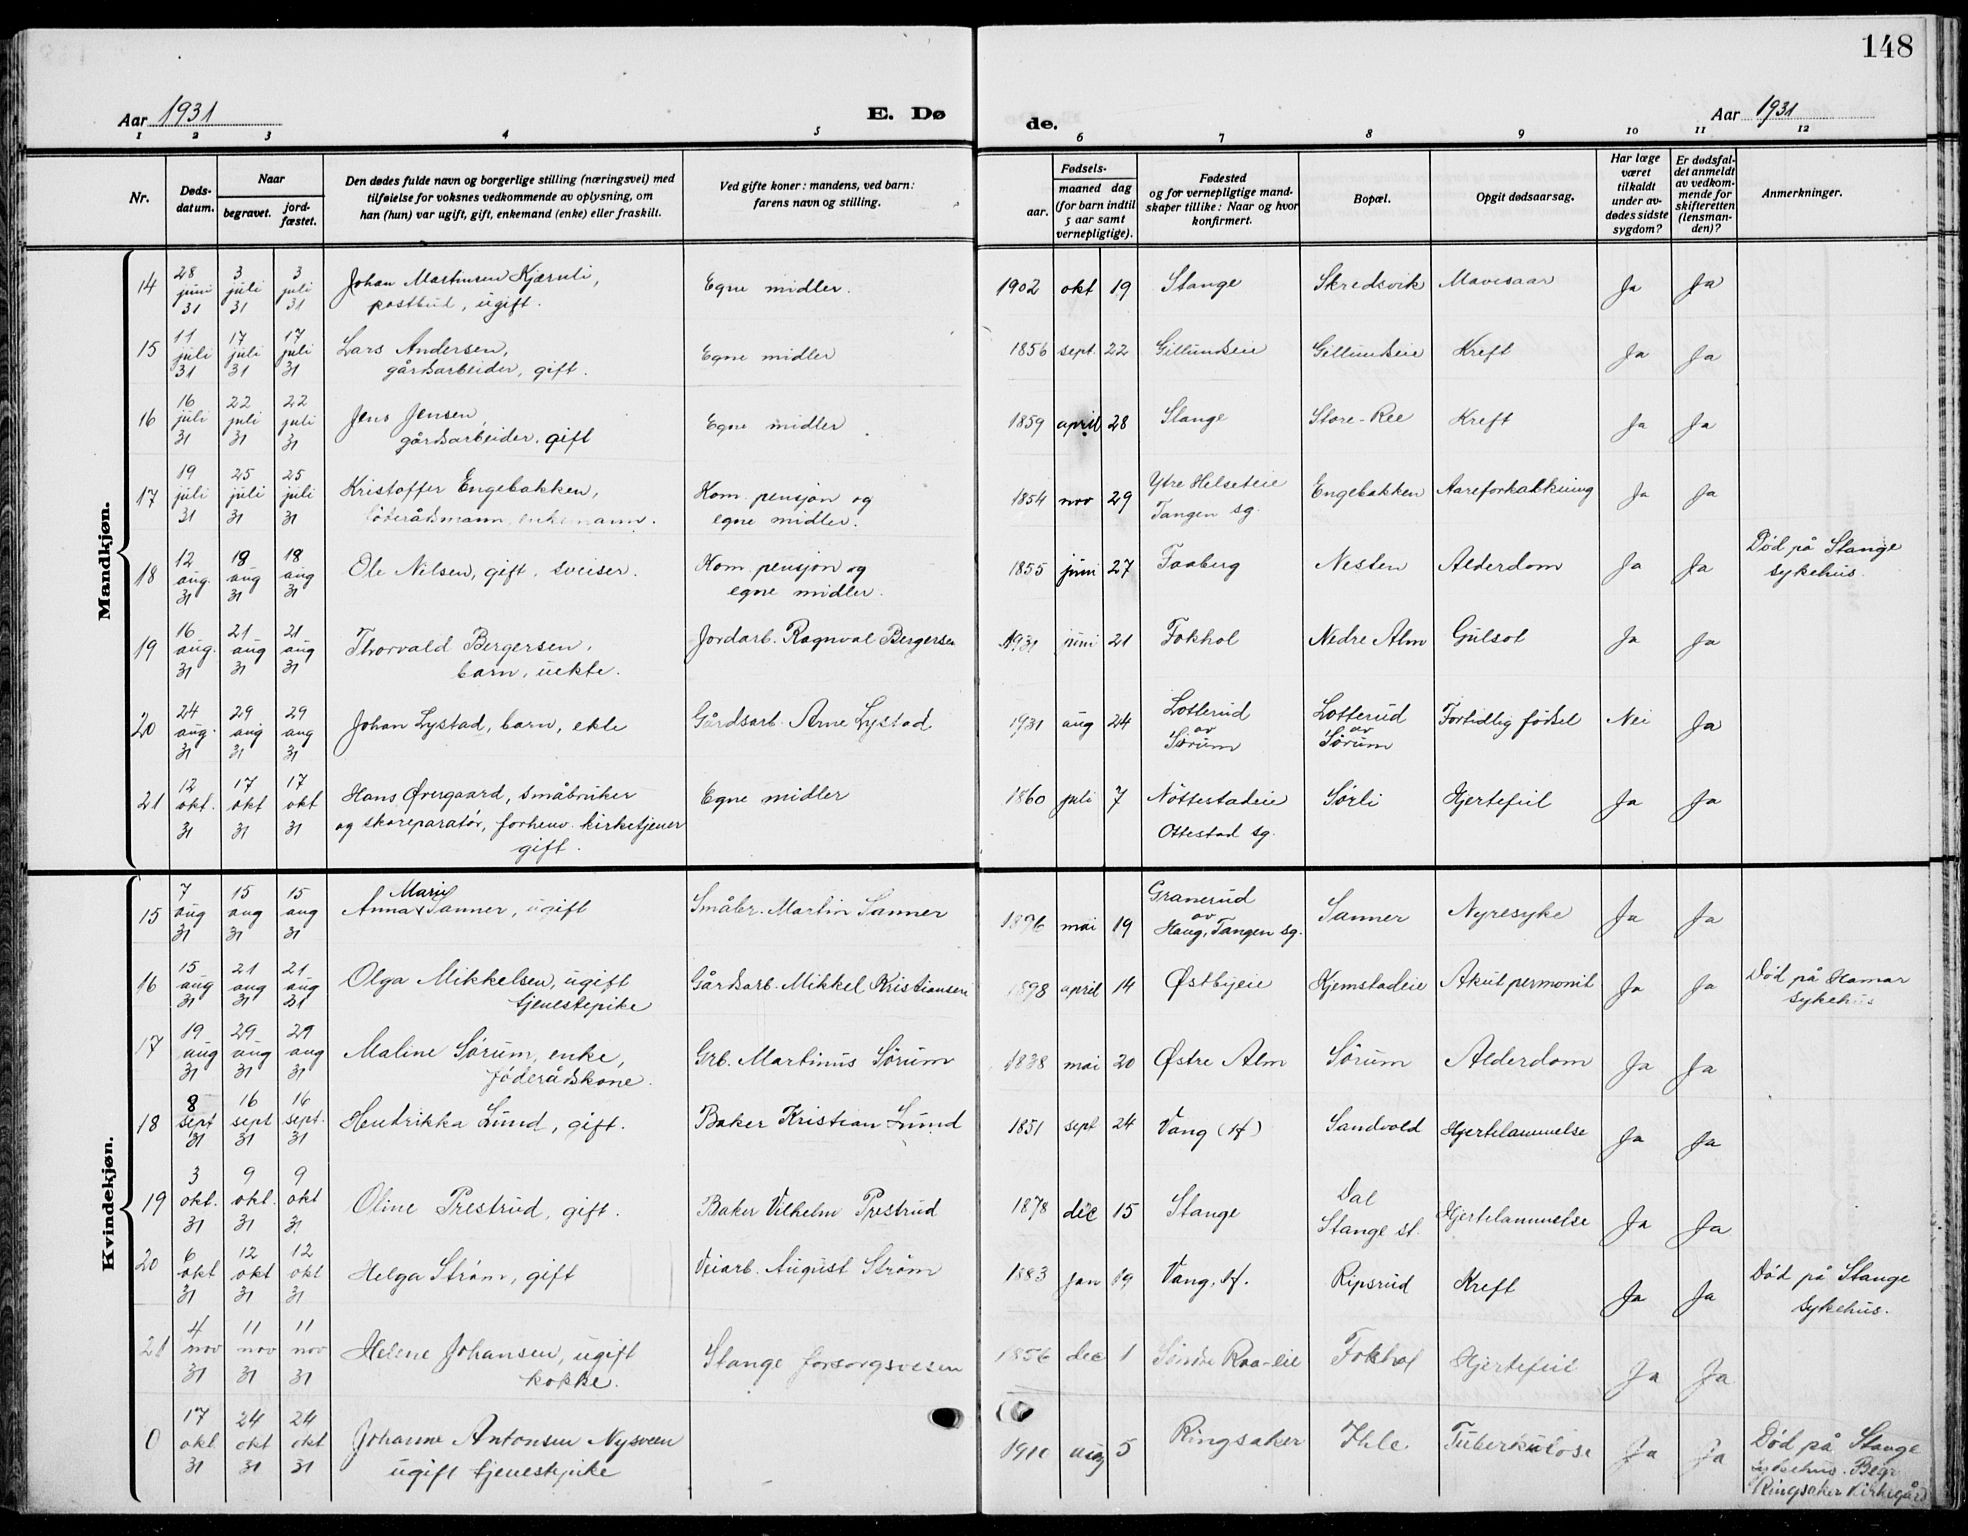 148
Aar 1931
E. Dø
de.
Aar 1931
1 2 3 4 5 6 7 8 9 10 11 12
Nr.
Døds-
datum.
Naar
begravet.
jord-
fæstet.
Den dødes fulde navn og borgerlige stilling (næringsvei) med
tilføielse for voksnes vedkommende av oplysning, om
han (hun) var ugift, gift, enkemand (enke) eller fraskilt.
Ved gifte koner: mandens, ved barn:
farens navn og stilling.
Fødsels-
aar.
maaned dag
(for barn indtil
5 aar samt
vernepligtige).
Fødested
og for vernepligtige mand-
skaper tillike: Naar og hvor
konfirmert.
Bopæl.
Opgit dødsaarsag.
Har læge
været
tilkaldt
under av-
dødes sidste
sygdom?
Er dødsfal-
det anmeldt
av vedkom-
mende for
skifteretten
(lensman-
den)?
Anmerkninger.
Mandkjøn.
14 28 juni 31 3 juli 31 3 juli 31 Johan Martinsen Kjærnli, postbud, ugift. Egne midler. 1902 okt 19 Stange Skredsvik Mavesaar Ja Ja
15 11 juli 31 17 juli 31 17 juli 31 Lars Andersen, gårdsarbeider, gift. Egne midler 1856 sept. 22 Gillundeie Gillundeie Kreft Ja Ja
16 16 juli 31 22 juli 31 22 juli 31 Jens Jensen, gårdsarbeider, gift Egne midler 1859 april 28 Stange Store-Ree Kreft Ja Ja
17 19 juli 31 25 juli 31 25 juli 31 Kristoffer Engebakken, föderådsmann, enkemann. Kom. pensjon og egne midler. 1854 nov 29 Ytre Helseteie Tangen sg. Engebakken Aareforkalkning Ja Ja
18 12 aug. 31 18 aug 31 18 aug 31 Ole Nilsen, gift, sveiser. Kom. pensjon og egne midler. 1855 juni 27 Faaberg Nesten Alderdom Ja Ja Död på Stange sykehus.
19 16 aug. 31 21 aug 31 21 aug 31 Thorvald Bergersen, barn, uekte. Jordarb. Ragnval Bergersen 1931 juni 21 Fokhol Nedre Alm Gulsot Ja Ja
20 24 aug. 31 29 aug 31 29 aug 31 Johan Lystad, barn, ekte Gårdsarb. Arne Lystad 1931 aug 24 Lotterud av Sørum Lotterud av Sörum Fortidlig födsel Nei Ja
21 12 okt. 31 17 okt 31 17 okt 31 Hans Övergaard, småbruker og skoreparatör, forhenv. kirketjener gift. Egne midler 1860 juli 7 Nöttestadeie Ottestad sg. Sörli Hjertefeil Ja Ja
Kvindekjøn.
15 7 aug 31 15 aug 31 15 aug 31 Anna Marie Sanner, ugift Småbr. Martin Sanner 1896 mai 19 Granerud av Haug, Tangen sg. Sanner Nyresyke Ja Ja
16 15 aug 31 21 aug 31 21 aug 31 Olga Mikkelsen, ugift tjenestepike Gårdsarb. Mikkel Kristiansen 1898 april 14 Østbyeie Kjemstadeie Akut permonit Ja Ja Död på Hamar sykehus
17 19 aug 31 29 aug 31 29 aug 31 Maline Sörum, enke, föderådskone. Grb. Martinus Sörum 1838 mai 20 Østre Alm Sörum Alderdom Ja Ja
18 8 sept 31 16 sept 31 16 sept. 31 Hendrikka Lund, gift. Baker Kristian Lund 1851 sept 24 Vang (H) Sandvold Hjertelammelse Ja Ja
19 3 okt. 31 9 okt. 31 9 okt 31 Oline Prestrud, gift. Baker Vilhelm Prestrud 1878 dec 15 Stange Dal Stange st. Hjertelammelse Ja Ja
20 6 okt 31 12 okt 31 12 okt 31 Helga Ström, gift Veiarb. August Ström 1883 jan 19 Vang, H. Ripsrud Kreft Ja Ja Död på Stange sykehus.
21 4 nov 31 11 nov 31 11 nov 31 Helene Johansen, ugift kokke. Stange forsorgsvesen 1856 dec 1 Söndre Raa-eie Fokhol Hjertefeil Ja Ja
0 17 okt 31 24 okt 31 24 okt 31 Johanne Antonsen Nysveen ugift tjenestepike 1910 aug 5 Ringsaker Ihle Tuberkulose Ja Ja Död på Stange sykehus. Begr. Ringsaker kirkegård